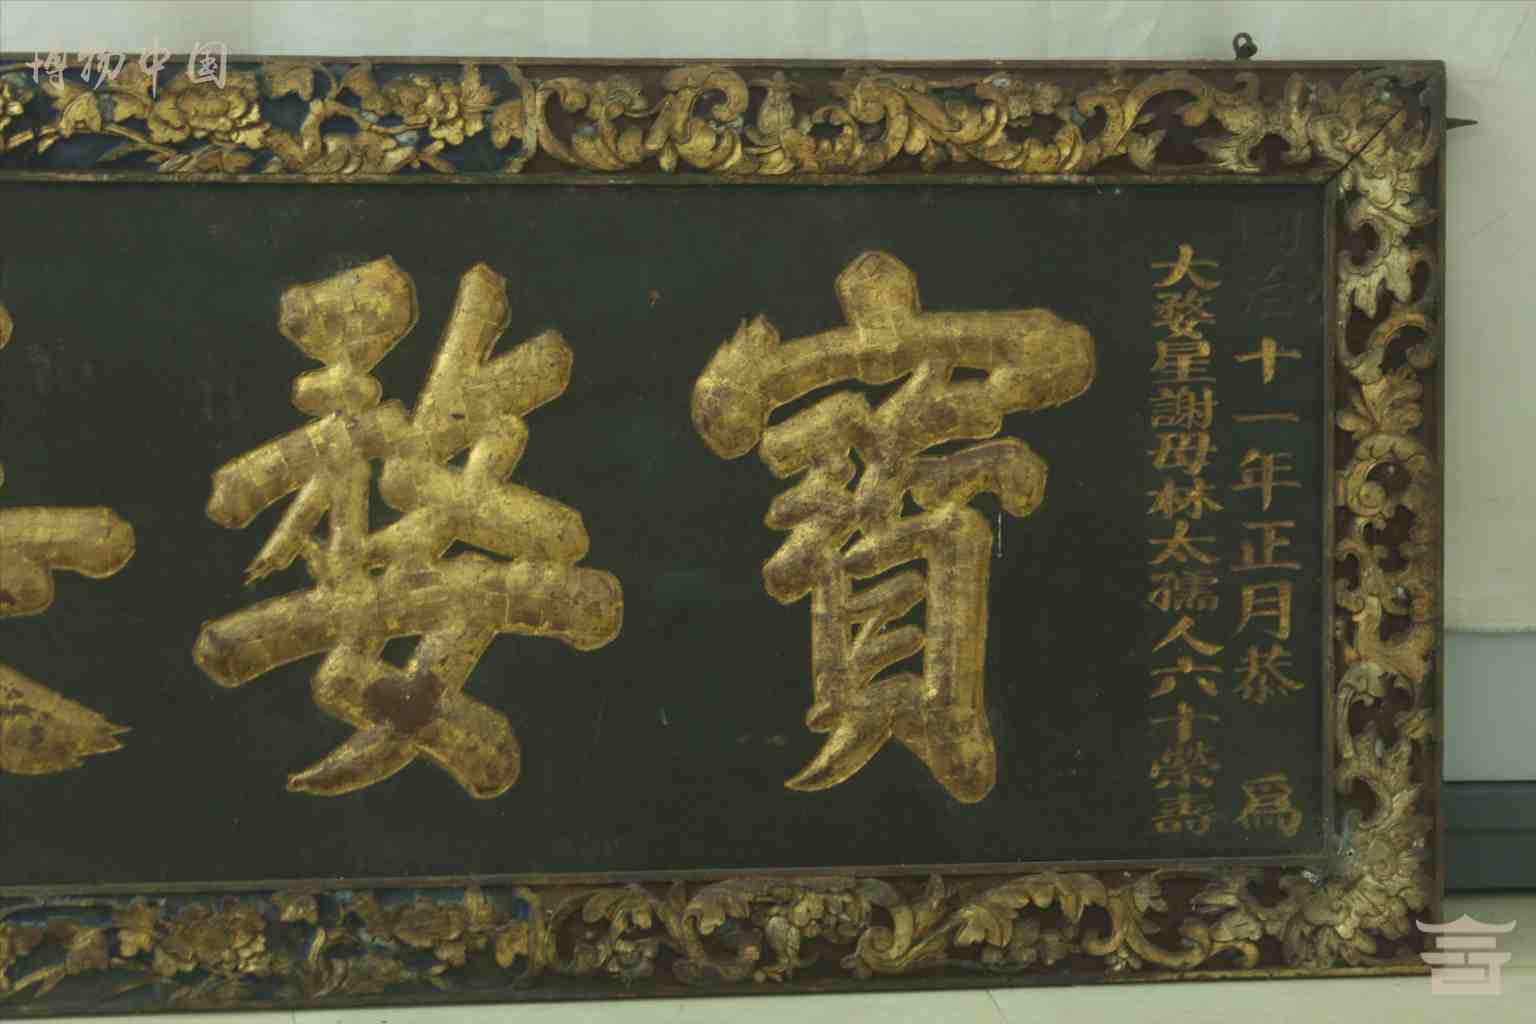 博物中国
同治十一年正月恭 爲
大婺星謝母林太孺人六十榮壽
寶婺